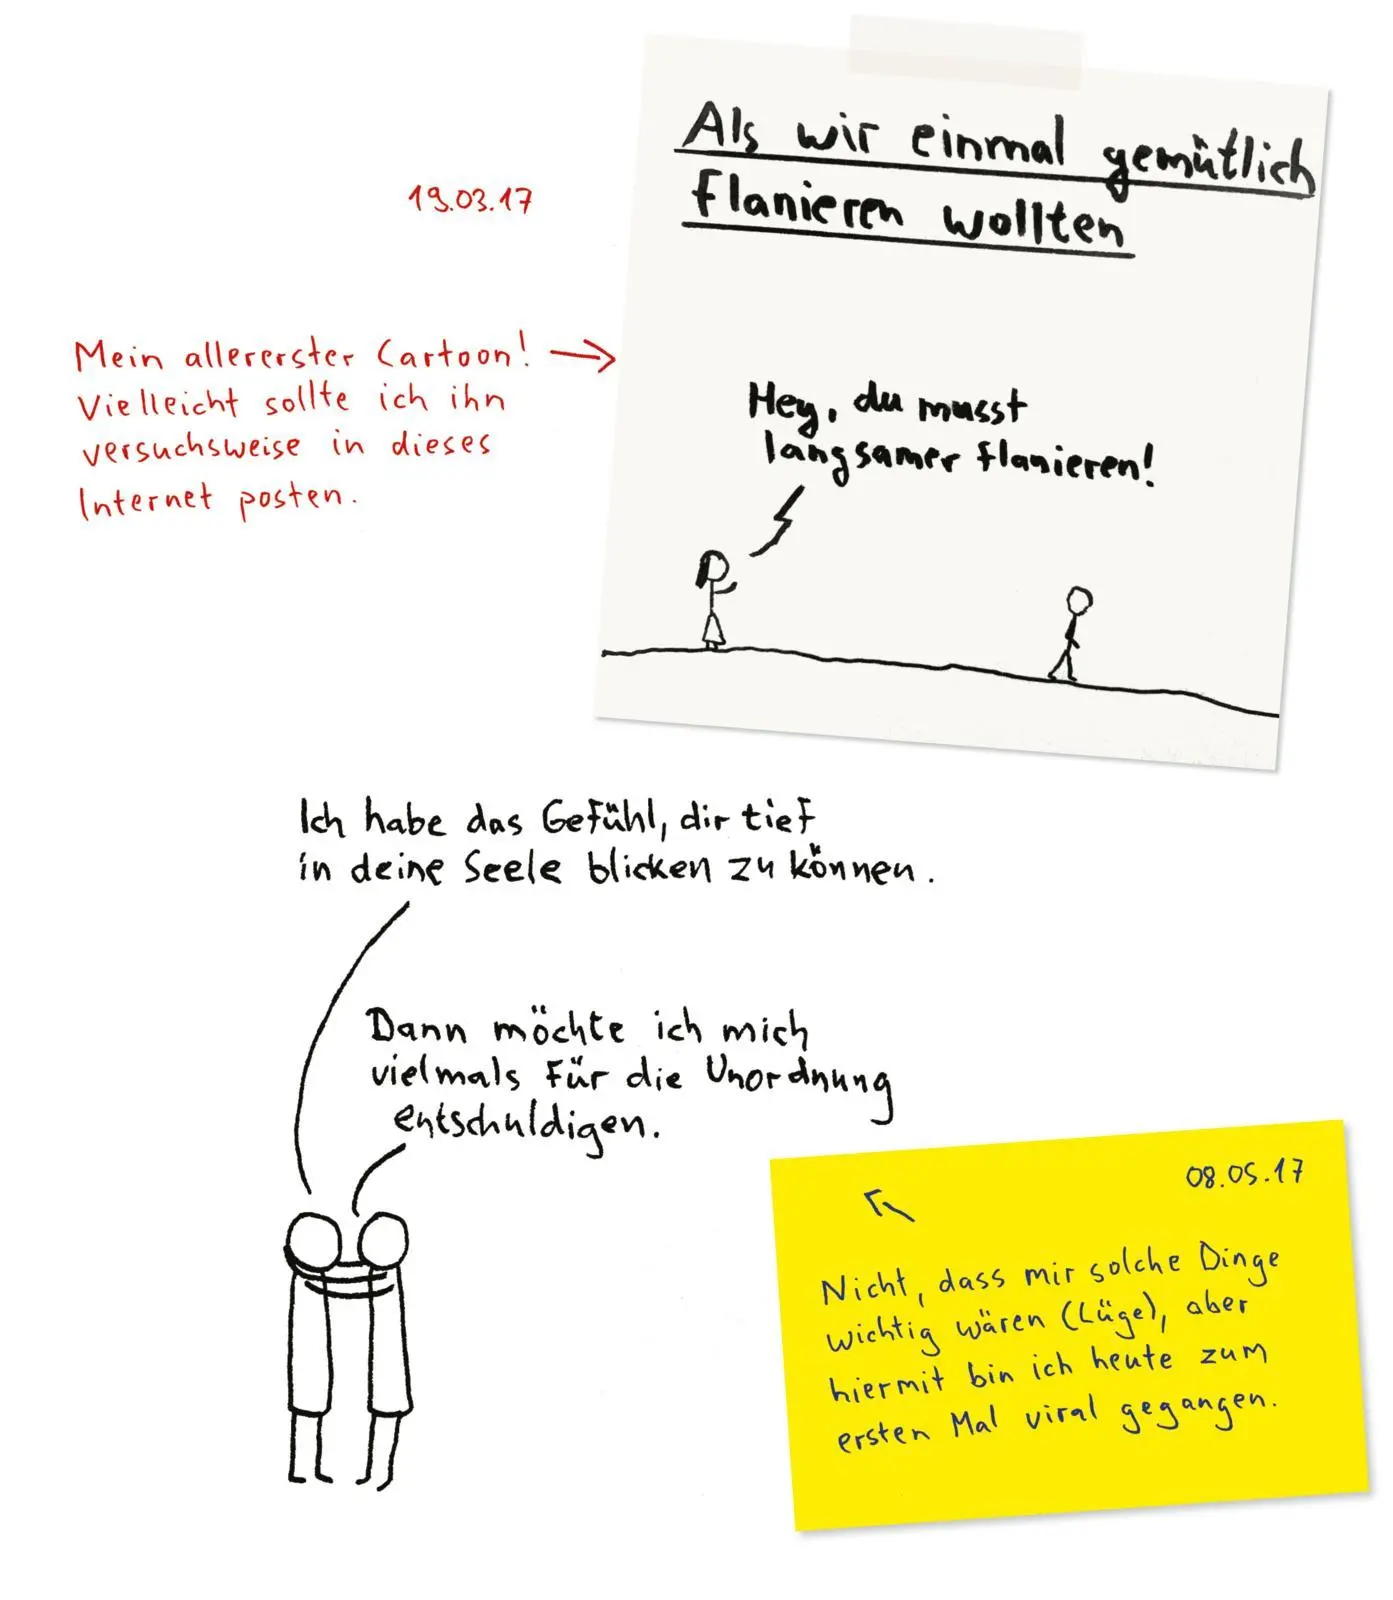 Als wir einmal gemütlich
flanieren wollten
19.03.17
Mein allererster Cartoon!
Vielleicht sollte ich ihn
versuchsweise in dieses
Internet posten.
Hey, du musst
langsamer flanieren!
Ich habe das Gefühl, dir tief
in deine Seele blicken zu können.
Dann möchte ich mich
vielmals für die Unordnung
entschuldigen.
08.05.17
Nicht, dass mir solche Dinge
wichtig wären (Lüge), aber
hiermit bin ich heute zum
ersten Mal viral gegangen.